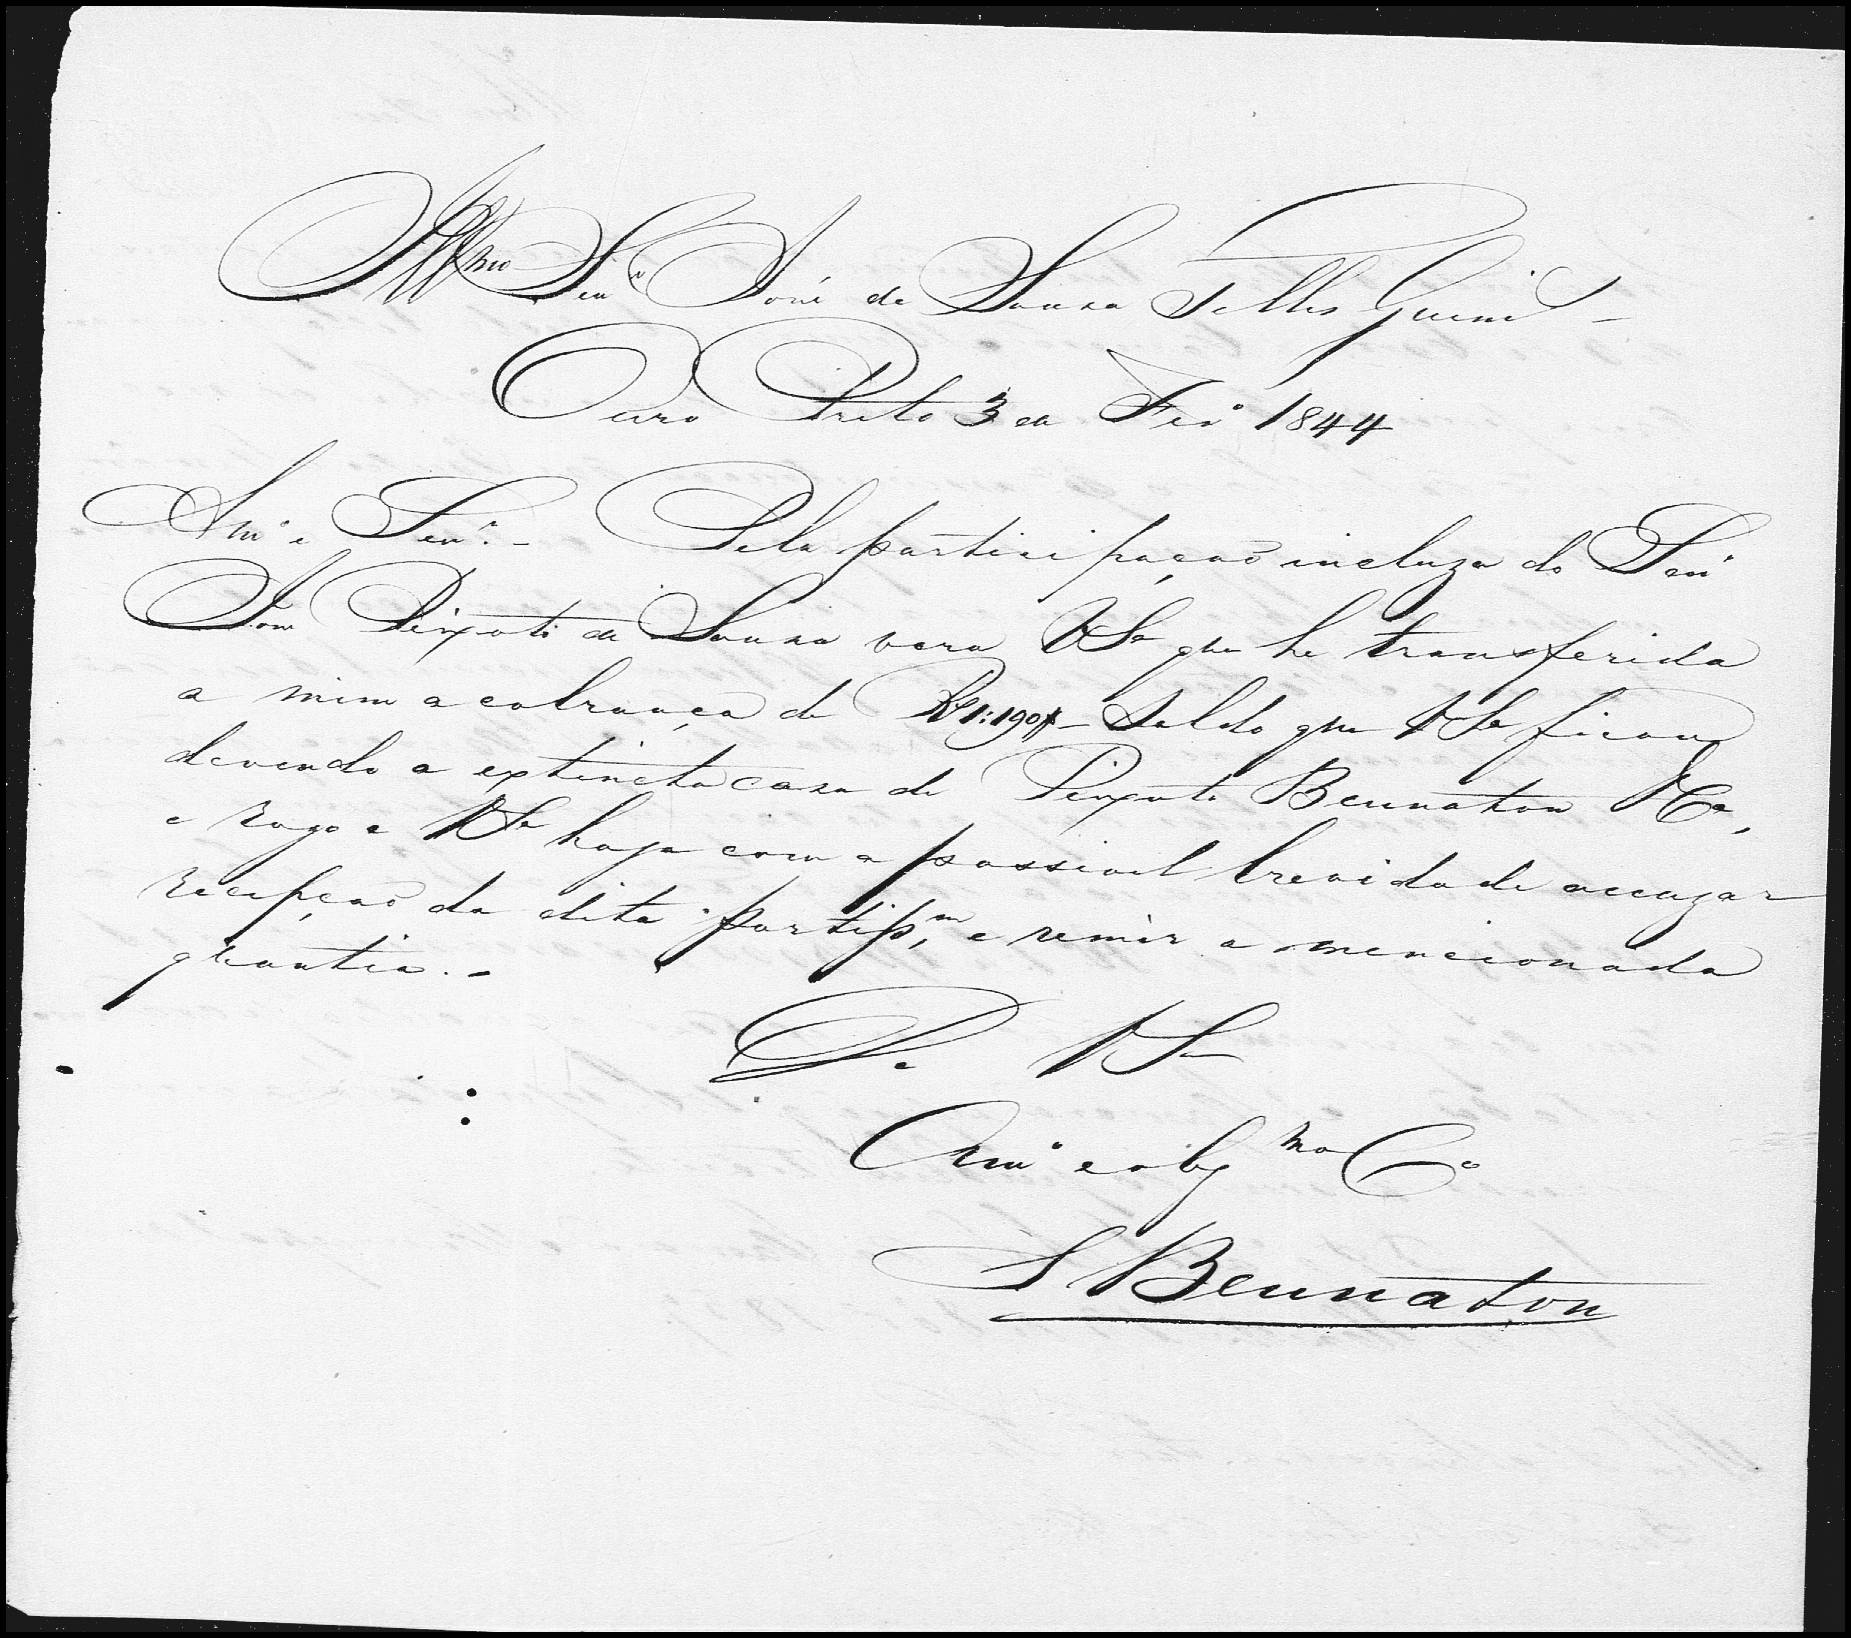 Illmo Senr José de Souza Telles Guim.es
Ouro Preto 3 de Fevo 1844
Amo e Senr. - Pela participação incluza do Senr
José Peixoto de Souza vera VSa que he transferida
a mim a cobrança de Rs 1:190$ - Saldo que VSa ficou
devendo a extincta caza de Peixoto Bennaton & Ca,
e rogo a VSa haja com a possivel brevidade accuzar
recepção da dita partipm, e remir a mencionada
quantia. -
De VSa
Amo e obgmo Co
S Bennaton